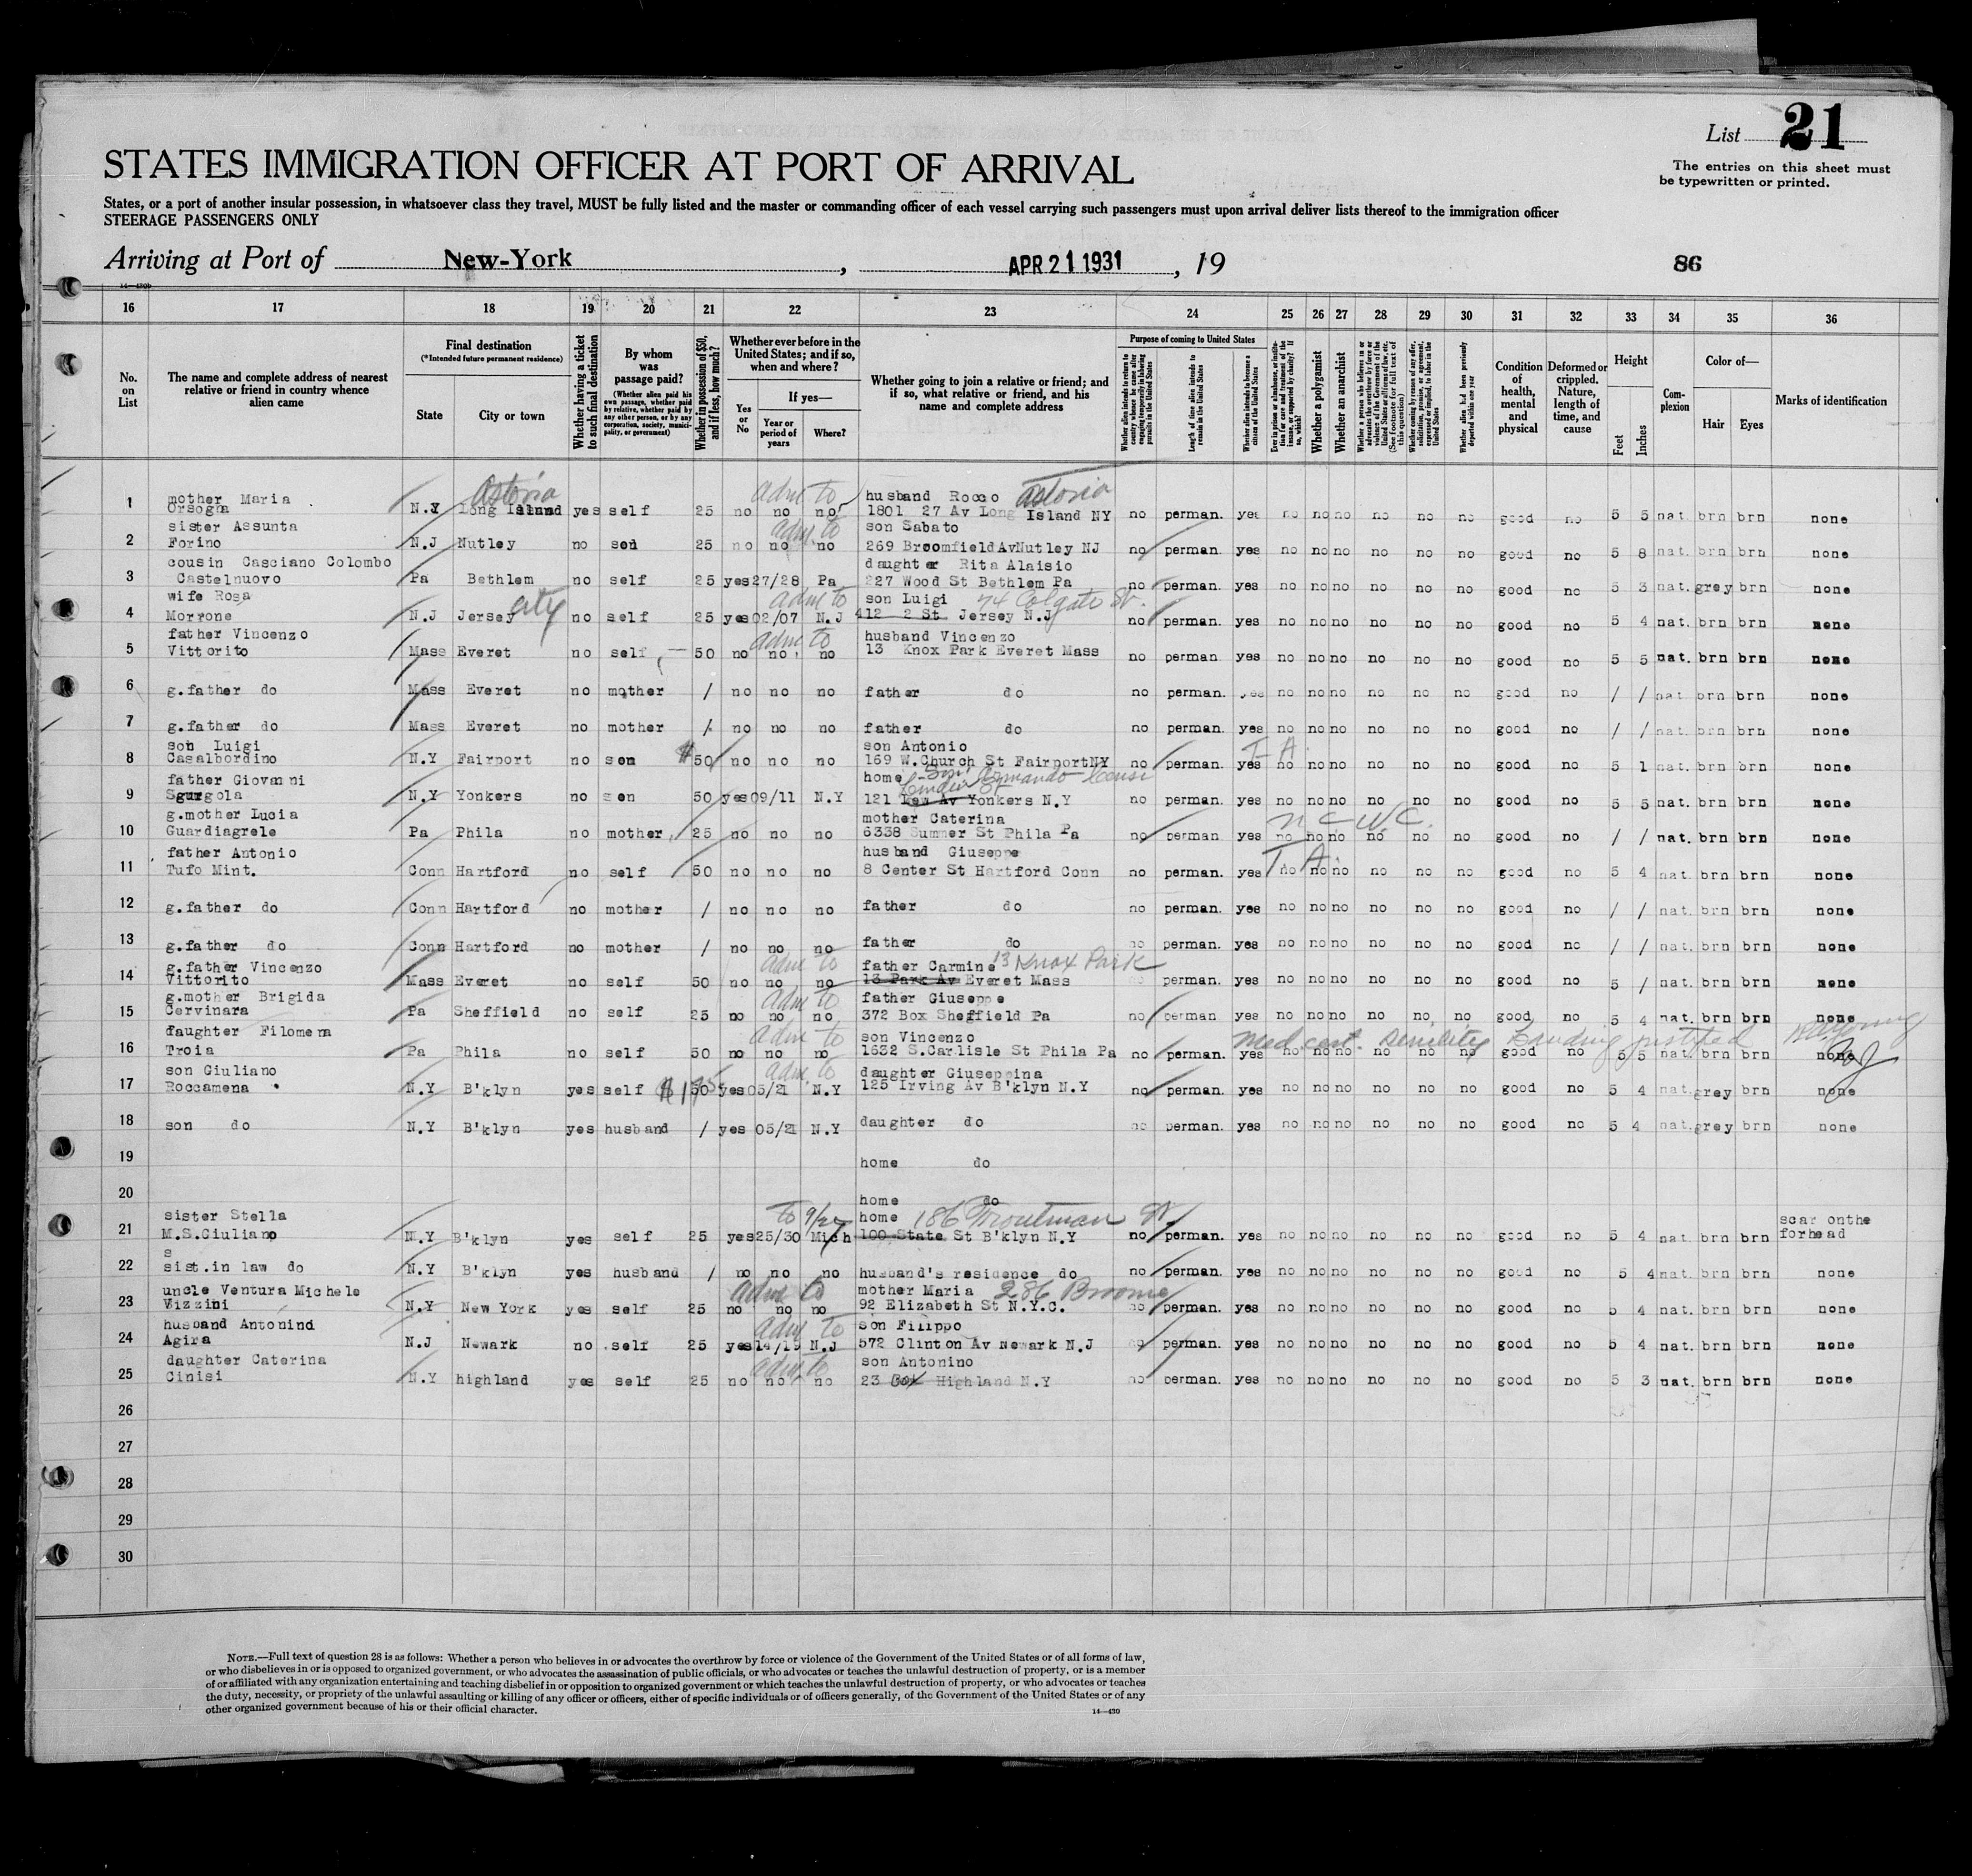 List 21
The entries on this sheet must
be typewritten or printed.
STATES IMMIGRATION OFFICER AT PORT OF ARRIVAL
States, or a port of another insular possession, in whatsoever class they travel, MUST be fully listed and the master or commanding officer of each vessel carrying such passengers must upon arrival deliver lists thereof to the immigration officer
STEERAGE PASSENGERS ONLY
Arriving at Port of New-York, APR 21 1931, 19 86
16 17 18 19 20 21 22 23 24 25 26 27 28 29 30 31 32 33 34 35 36
No. on List
The name and complete address of nearest relative or friend in country whence alien came
Final destination
(*Intended future permanent residence)
State
City or town
Whether having a ticket to such final destination
By whom was passage paid?
(Whether alien paid his own passage, whether paid by relative, whether paid by any other person, or by any corporation, society, municipality, or government)
Whether in possession of $50, and if less, how much?
Whether ever before in the United States; and if so, when and where?
Yes or No
If yes—
Year or period of years
Where?
Whether going to join a relative or friend; and if so, what relative or friend, and his name and complete address
Purpose of coming to United States
Whether alien intends to return to country whence he came after engaging temporarily in laboring pursuits in the United States
Length of time alien intends to remain in the United States
Whether alien intends to become a citizen of the United States
Whether a polygamist
Whether an anarchist
Condition of health, mental and physical
Deformed or crippled. Nature, length of time, and cause
Height
Feet
Inches
Complexion
Color of—
Hair
Eyes
Marks of identification
1 mother Maria Astoria adm to husband Rocco Astoria
Orsogna N.Y Long Island yes self 25 no no no 1801 27 Av Long Island NY no perman. yes no no no no no no good no 5 5 nat. brn brn none
2 sister Assunta adm to son Sabato
Forino N.J Nutley no son 25 no no no 269 BroomfieldAvNutley NJ no perman. yes no no no no no no good no 5 8 nat. brn brn none
3 cousin Casciano Colombo daughter Rita Alaisio
Castelnuovo Pa Bethlem no self 25 yes 27/28 Pa 227 Wood St Bethlem Pa no perman. yes no no no no no no good no 5 3 nat. grey brn none
4 wife Rosa adm to son Luigi 74 Colgate St.
Morrone N.J Jersey City no self 25 yes 02/07 N.J 412 2 St Jersey N.J no perman. yes no no no no no no good no 5 4 nat. brn brn none
5 father Vincenzo adm to husband Vincenzo
Vittorito Mass Everet no self 50 no no no 13 Knox Park Everet Mass no perman. yes no no no no no no good no 5 5 nat. brn brn none
6 g.father do Mass Everet no mother / no no no father do no perman. yes no no no no no no good no / / nat. brn brn none
7 g.father do Mass Everet no mother / no no no father do no perman. yes no no no no no no good no / / nat. brn brn none
8 son Luigi son Antonio T A.
Casalbordino N.Y Fairport no son $ 50 no no no 169 W.Church St FairportNY no perman. yes no no no no no no good no 5 1 nat. brn brn none
9 father Giovanni home Son Armando
Sgurgola N.Y Yonkers no son 50 yes 09/11 N.Y 121 Law Av Yonkers N.Y no perman. yes no no no no no no good no 5 5 nat. brn brn none
10 g.mother Lucia mother Caterina n C W C.
Guardiagrele Pa Phila no mother 25 no no no 6338 Summer St Phila Pa no perman yes no no no no no no good no / / nat. brn brn none
11 father Antonio husband Giuseppe T A.
Tufo Mint. Conn Hartford no self 50 no no no 8 Center St Hartford Conn no perman. yes no no no no no no good no 5 4 nat. brn brn none
12 g.father do Conn Hartford no mother / no no no father do no perman. yes no no no no no no good no / / nat. brn brn none
13 g.father do Conn Hartford no mother / no no no father do no perman. yes no no no no no no good no / / nat. brn brn none
14 g.father Vincenzo adm to father Carmine 13 Knox Park
Vittorito Mass Everet no self 50 no no no 13 Park Av Everet Mass no perman. yes no no no no no no good no 5 / nat. brn brn none
15 g.mother Brigida adm to father Giuseppe
Cervinara Pa Sheffield no self 25 no no no 372 Box Sheffield Pa no perman yes no no no no no no good no 5 4 nat. brn brn none
16 daughter Filomena adm to son Vincenzo Med cert. senility Landing justified
Troia Pa Phila no self 50 no no no 1632 S.Carlisle St Phila Pa no perman. yes no no no no no no good no 5 5 nat. brn brn none
17 son Giuliano adm. to daughter Giuseppina
Roccamena N.Y B'klyn yes self $175 50 yes 05/21 N.Y 125 Irving Av B'klyn N.Y no perman. yes no no no no no no good no 5 4 nat. grey brn none
18 son do N.Y B'klyn yes husband / yes 05/21 N.Y daughter do no perman. yes no no no no no no good no 5 4 nat. grey brn none
19 home do
20 home do
21 sister Stella to 9/27 home 186 Troutman St. scar onthe
M.S.Giuliano N.Y B'klyn yes self 25 yes 25/30 Mich 100 State St B'klyn N.Y no perman. yes no no no no no no good no 5 4 nat. brn brn forhead
22 s
sist.in law do N.Y B'klyn yes husband / no no no husband's residence do no perman. yes no no no no no no good no 5 4 nat. brn brn none
23 uncle Ventura Michele adm to mother Maria 286 Broome
Vizzini N.Y New York yes self 25 no no no 92 Elizabeth St N.Y.C. no perman. yes no no no no no no good no 5 4 nat. brn brn none
24 husband Antonino adm to son Filippo
Agira N.J Newark no self 25 yes 14/19 N.J 572 Clinton Av Newark N.J no perman. yes no no no no no no good no 5 4 nat. brn brn none
25 daughter Caterina adm to son Antonino
Cinisi N.Y highland yes self 25 no no no 23 Box Highland N.Y no perman. yes no no no no no no good no 5 3 nat. brn brn none
26
27
28
29
30
NOTE.—Full text of question 28 is as follows: Whether a person who believes in or advocates the overthrow by force or violence of the Government of the United States or of all forms of law,
or who disbelieves in or is opposed to organized government, or who advocates the assassination of public officials, or who advocates or teaches the unlawful destruction of property, or is a member
of or affiliated with any organization entertaining and teaching disbelief in or opposition to organized government or which teaches the unlawful destruction of property, or who advocates or teaches
the duty, necessity, or propriety of the unlawful assaulting or killing of any officer or officers, either of specific individuals or of officers generally, of the Government of the United States or of any
other organized government because of his or their official character.
14—430